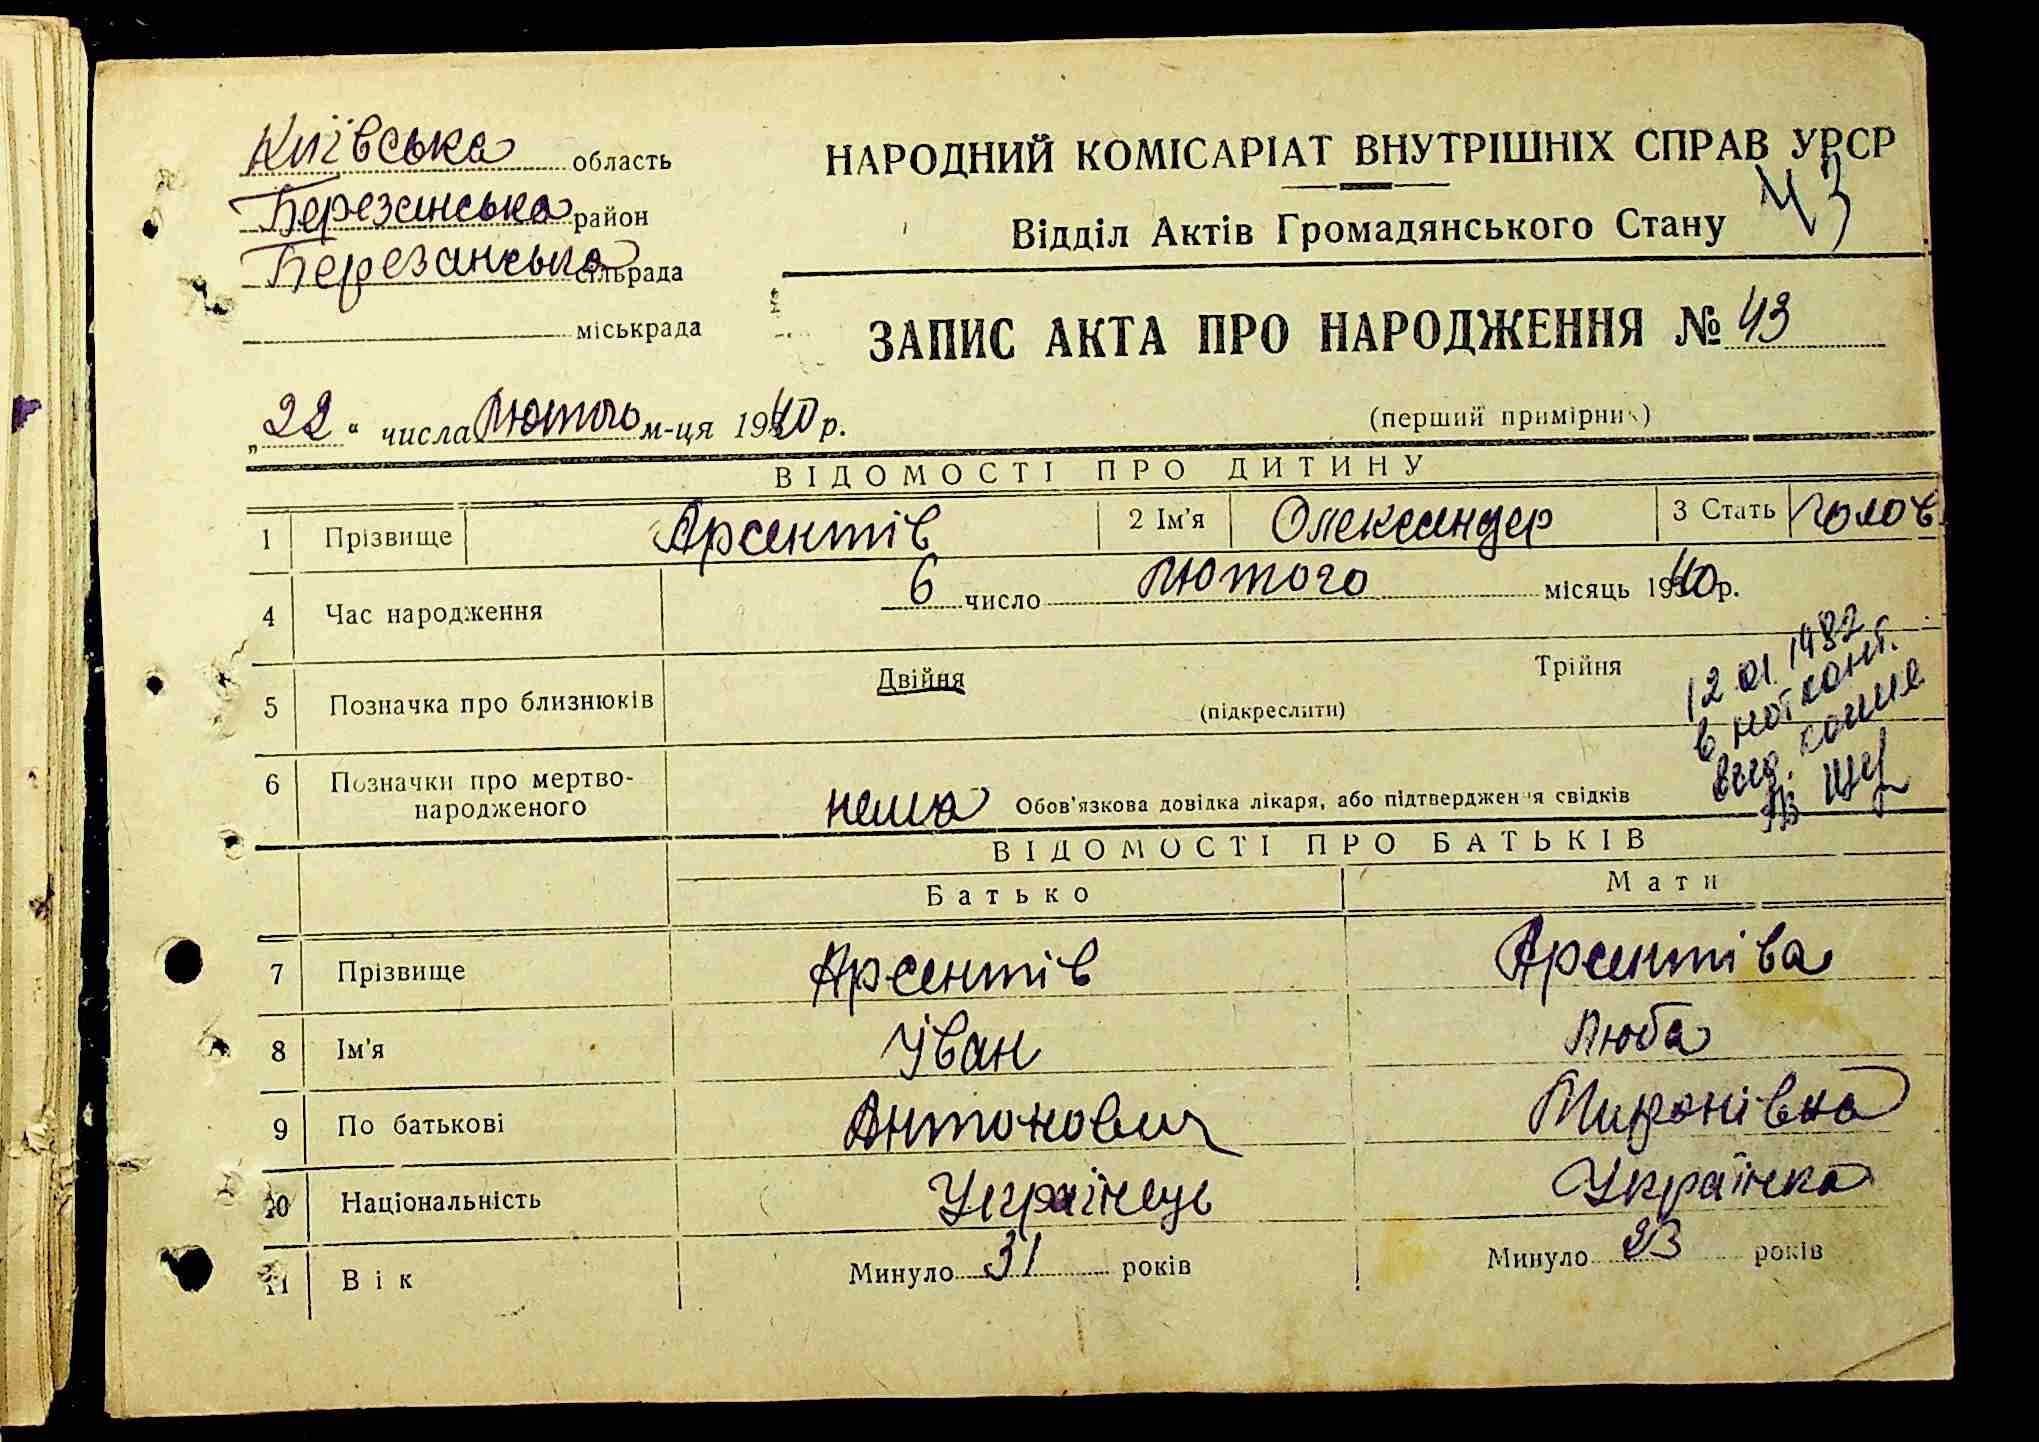 Київська область
Березанська район
Березанська сільрада
міськрада
НАРОДНИЙ КОМІСАРІАТ ВНУТРІШНІХ СПРАВ УРСР
Відділ Актів Громадянського Стану
43
ЗАПИС АКТА ПРО НАРОДЖЕННЯ № 43
„22“ числа Лютого м-ця 1940 р.
(перший примірник)
ВІДОМОСТІ ПРО ДИТИНУ
1 Прізвище Арсентів 2 Ім'я Олександер 3 Стать Чолов.
4 Час народження 6 число Лютого місяць 1940 р.
5 Позначка про близнюків Двійня Трійня
(підкреслити)
12 01 1982
в нот конт.
выд. копия
6 Позначки про мертво-
народженого нема Обов'язкова довідка лікаря, або підтвердження свідків
ВІДОМОСТІ ПРО БАТЬКІВ
Батько Мати
7 Прізвище Арсентів Арсентіва
8 Ім'я Іван Люба
9 По батькові Антонович Миронівна
10 Національність Українець Українка
11 Вік Минуло 31 років Минуло 23 років